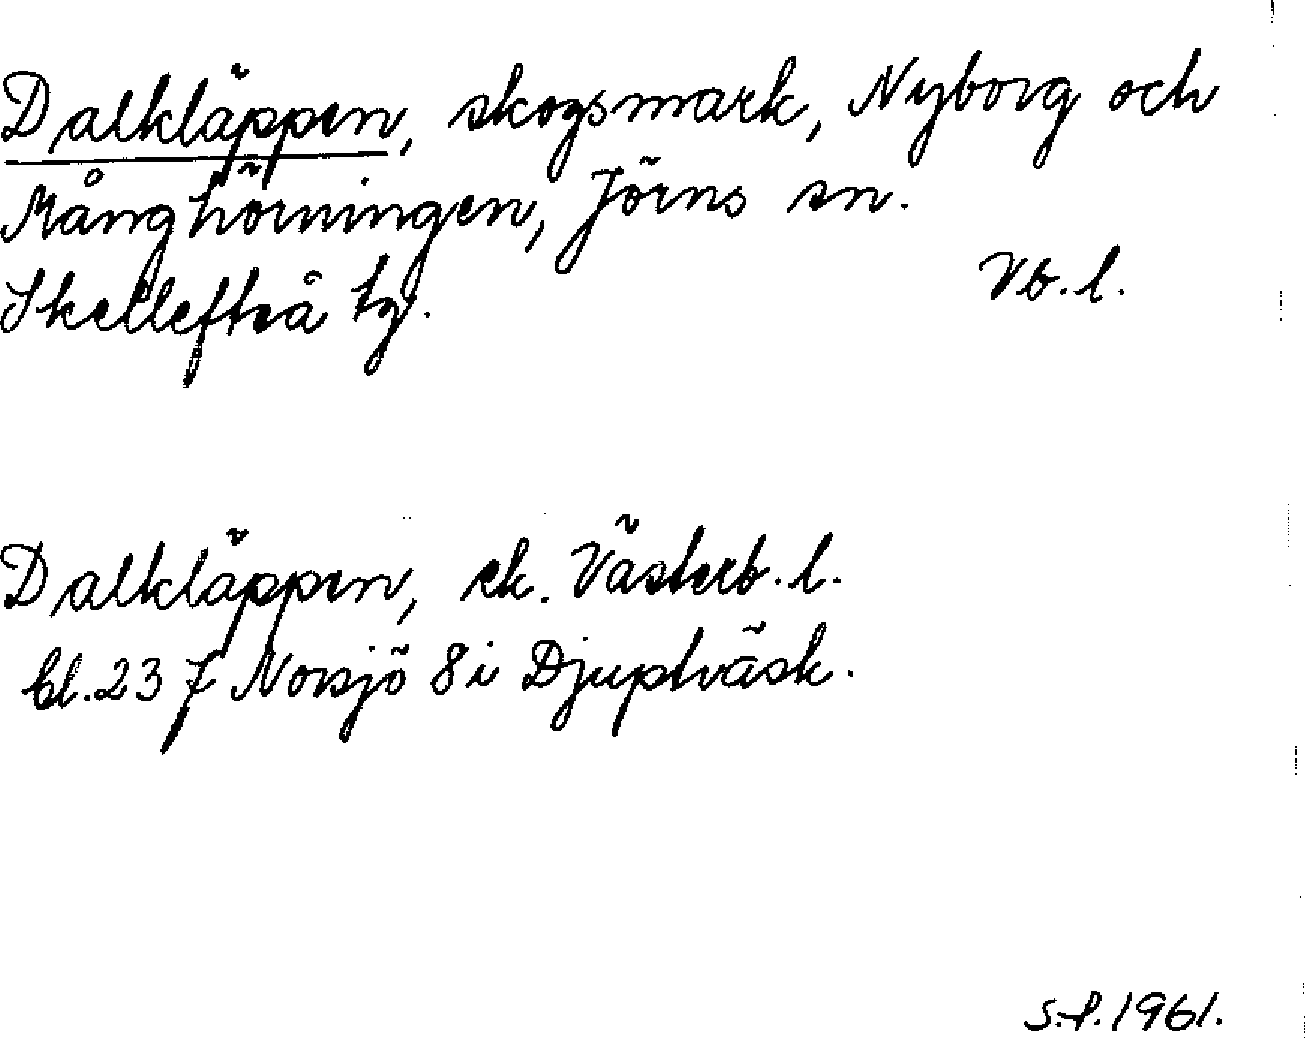 Dalkläppen, skogsmark, Nyborg och
Månghörningen, Jörns sn.
Skellefteå tg. Vb. l.
Dalkläppen, ek. Västerb. l.
bl. 23 J Norsjö 8 i Djupträsk.
S.P. 1961.